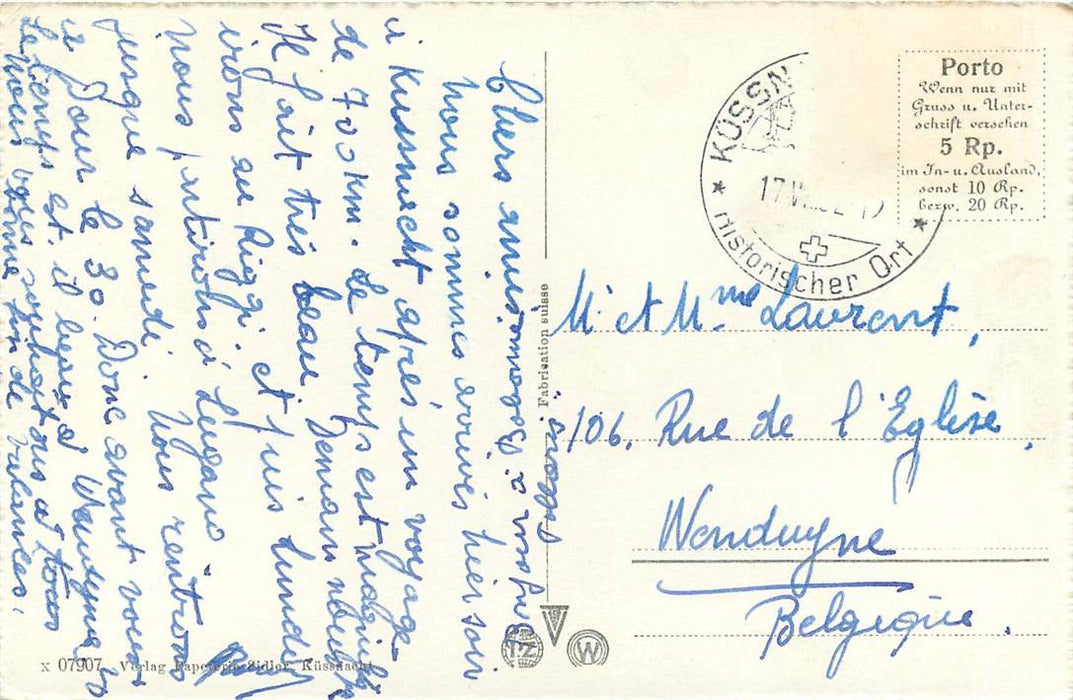 Chers amis,
Nous sommes arrivés hier soir
à Kussnacht après un voyage
de 700 km. Le temps est
Il fait très beau Demain nous
irons au Riggi. et puis lundi
Nous partirons à Lugano.
jusque samedi. Nous rentrons
Pour le 30. Donc avant vous
Le temps est-il beau à Wenduyne
Nous vous souhaitons à tous
bonne fin de vacances.
Fabrication suisse
KÜSSN
17 V
Historischer Ort
Porto
Wenn nur mit
Gruss u. Unter-
schrift versehen
5 Rp.
im In- u. Ausland,
sonst 10 Rp.
bezw. 20 Rp.
M. et Mme Laurent,
106, Rue de l'Eglise.
Wenduyne
Belgique.
TZ
W
x 07907 Verlag Papeterie Sidler, Küssnacht